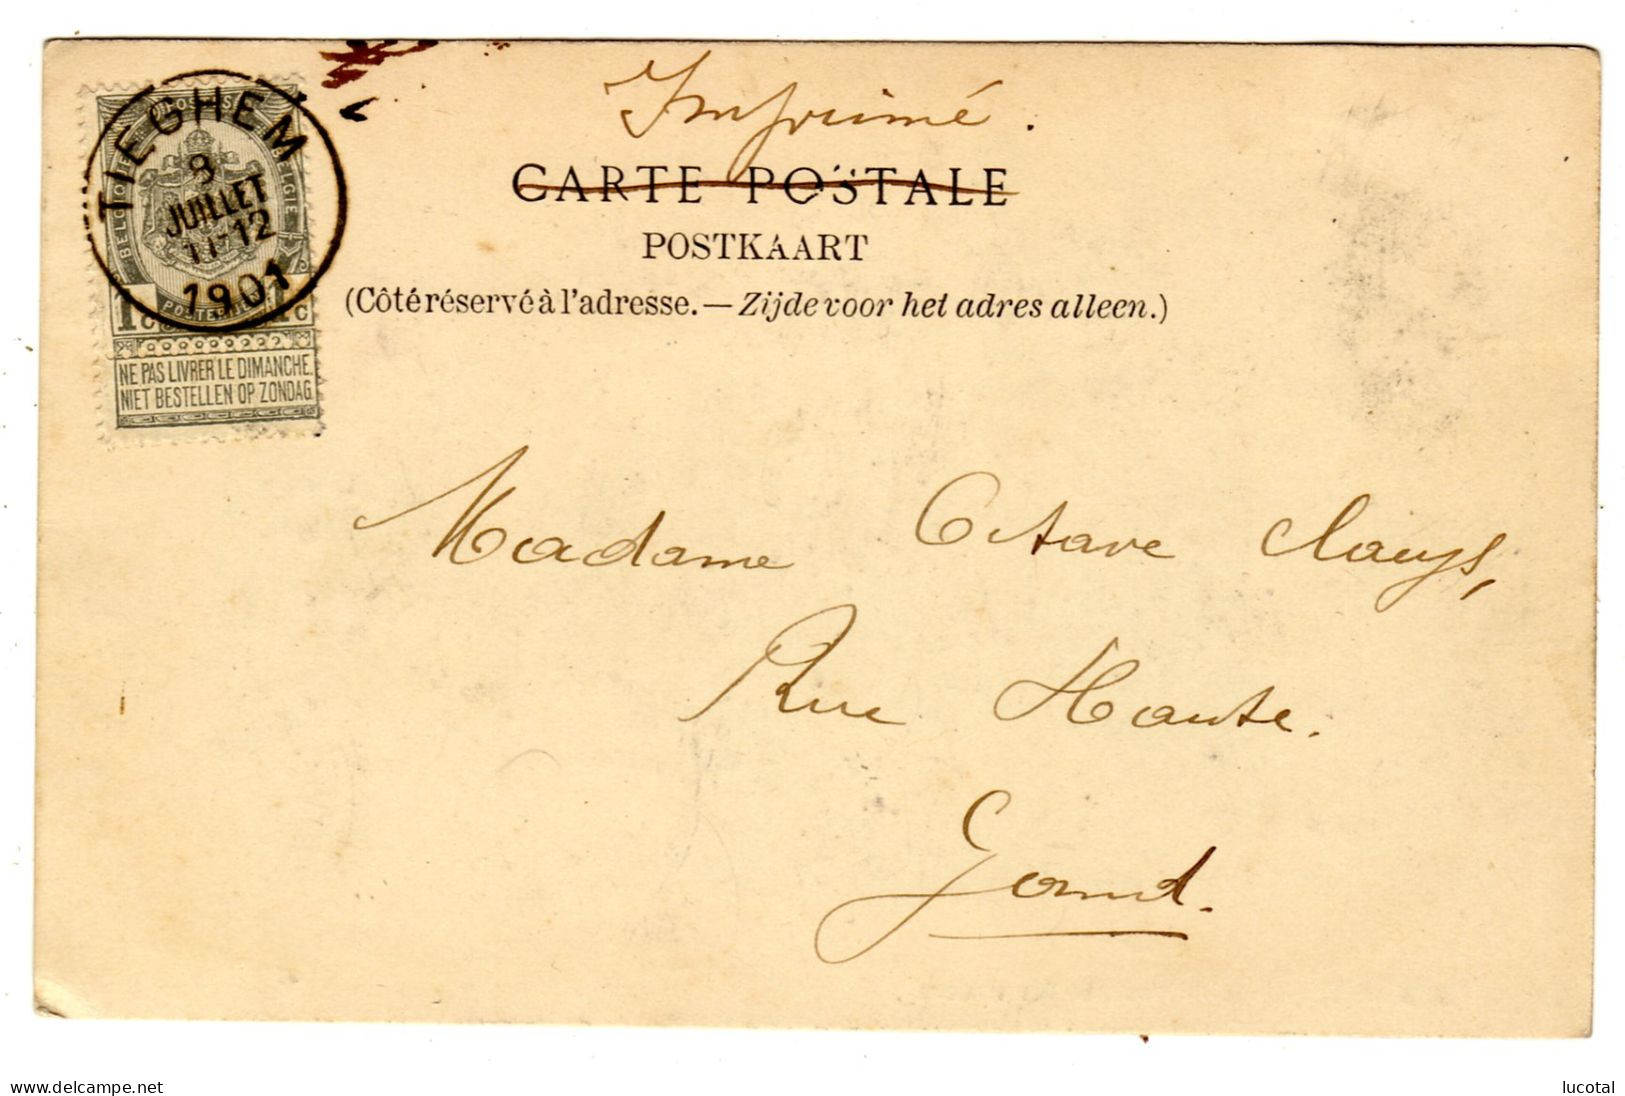 Imprimé.
CARTE POSTALE
POSTKAART
(Côté réservé à l'adresse. — Zijde voor het adres alleen.)
TIEGHEM
8
JUILLET
11-12
1901
BELGIQUE
BELGIE
1c
NE PAS LIVRER LE DIMANCHE.
NIET BESTELLEN OP ZONDAG
Madame Octave Clauys,
Rue Haute.
Gand.
www.delcampe.net
lucotal